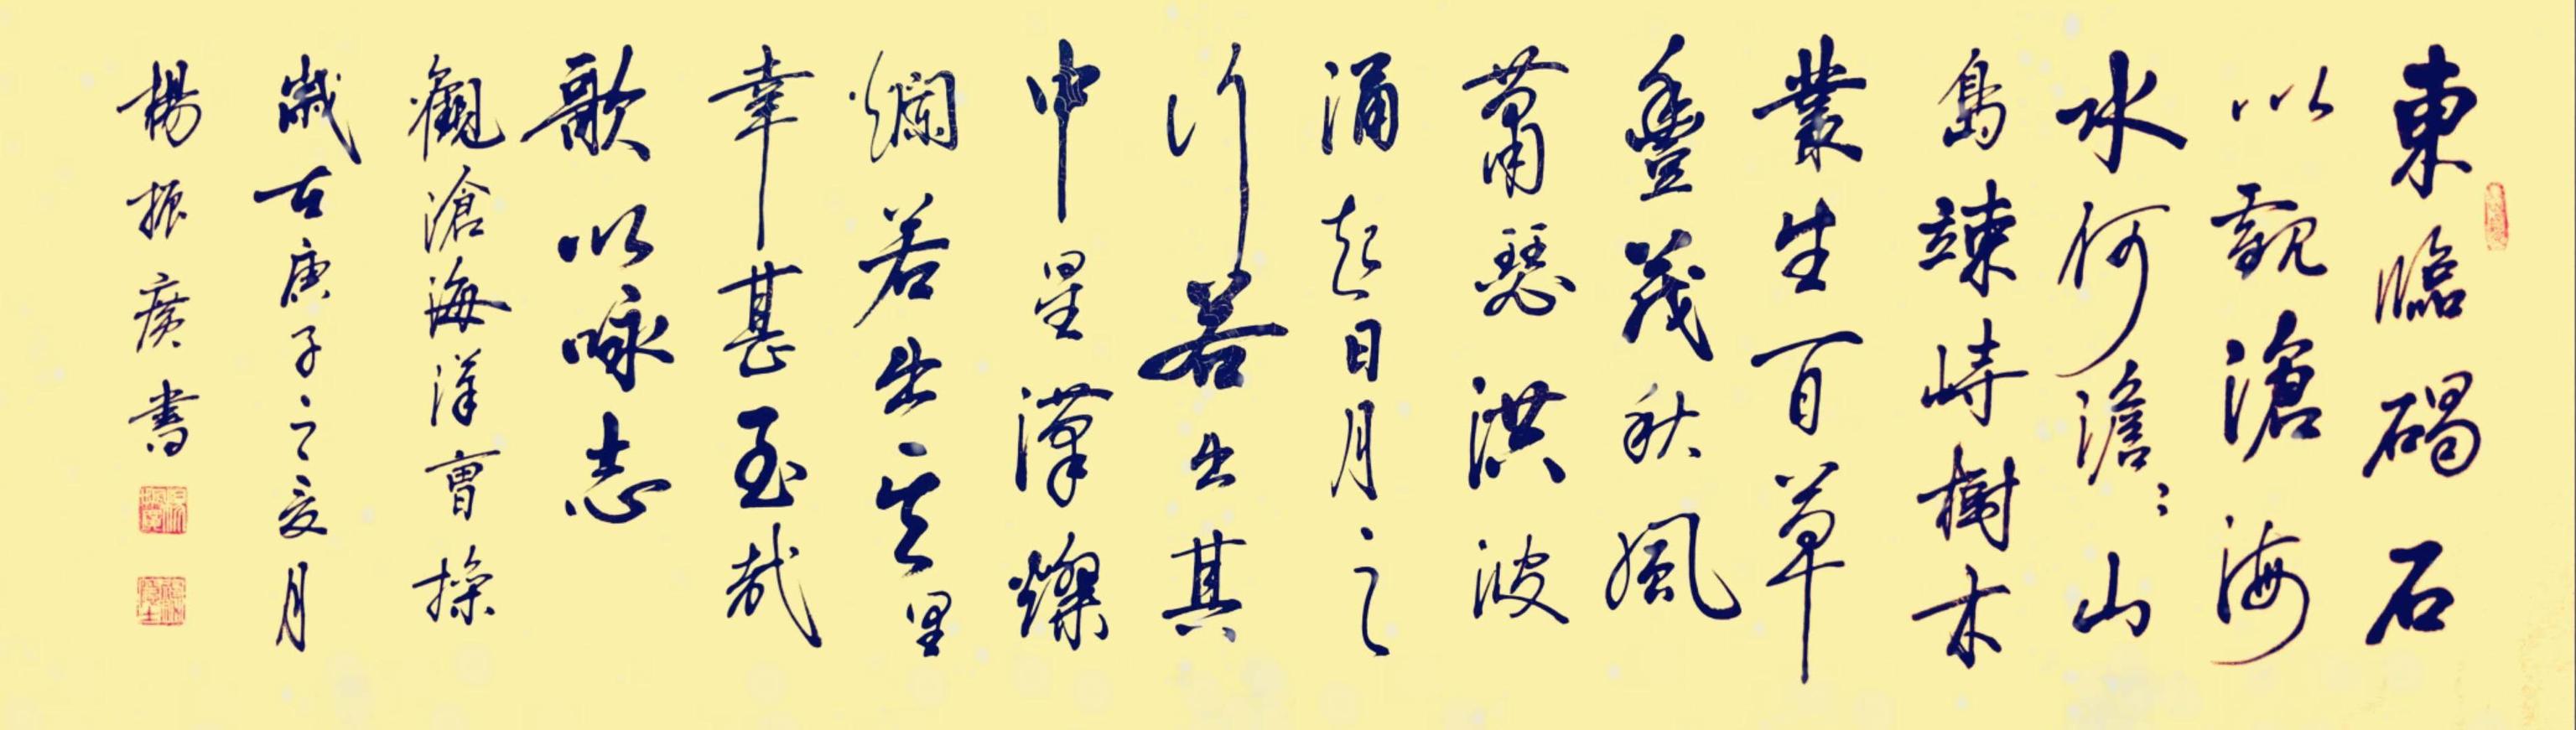 東臨碣石
以觀滄海
水何澹〻山
島竦峙樹木
叢生百草
豐茂秋風
蕭瑟洪波
涌起日月之
行若出其
中星漢燦
爛若出其里
幸甚至哉
歌以咏志
觀滄海漢曹操
歲在庚子之夏月
楊振廣書